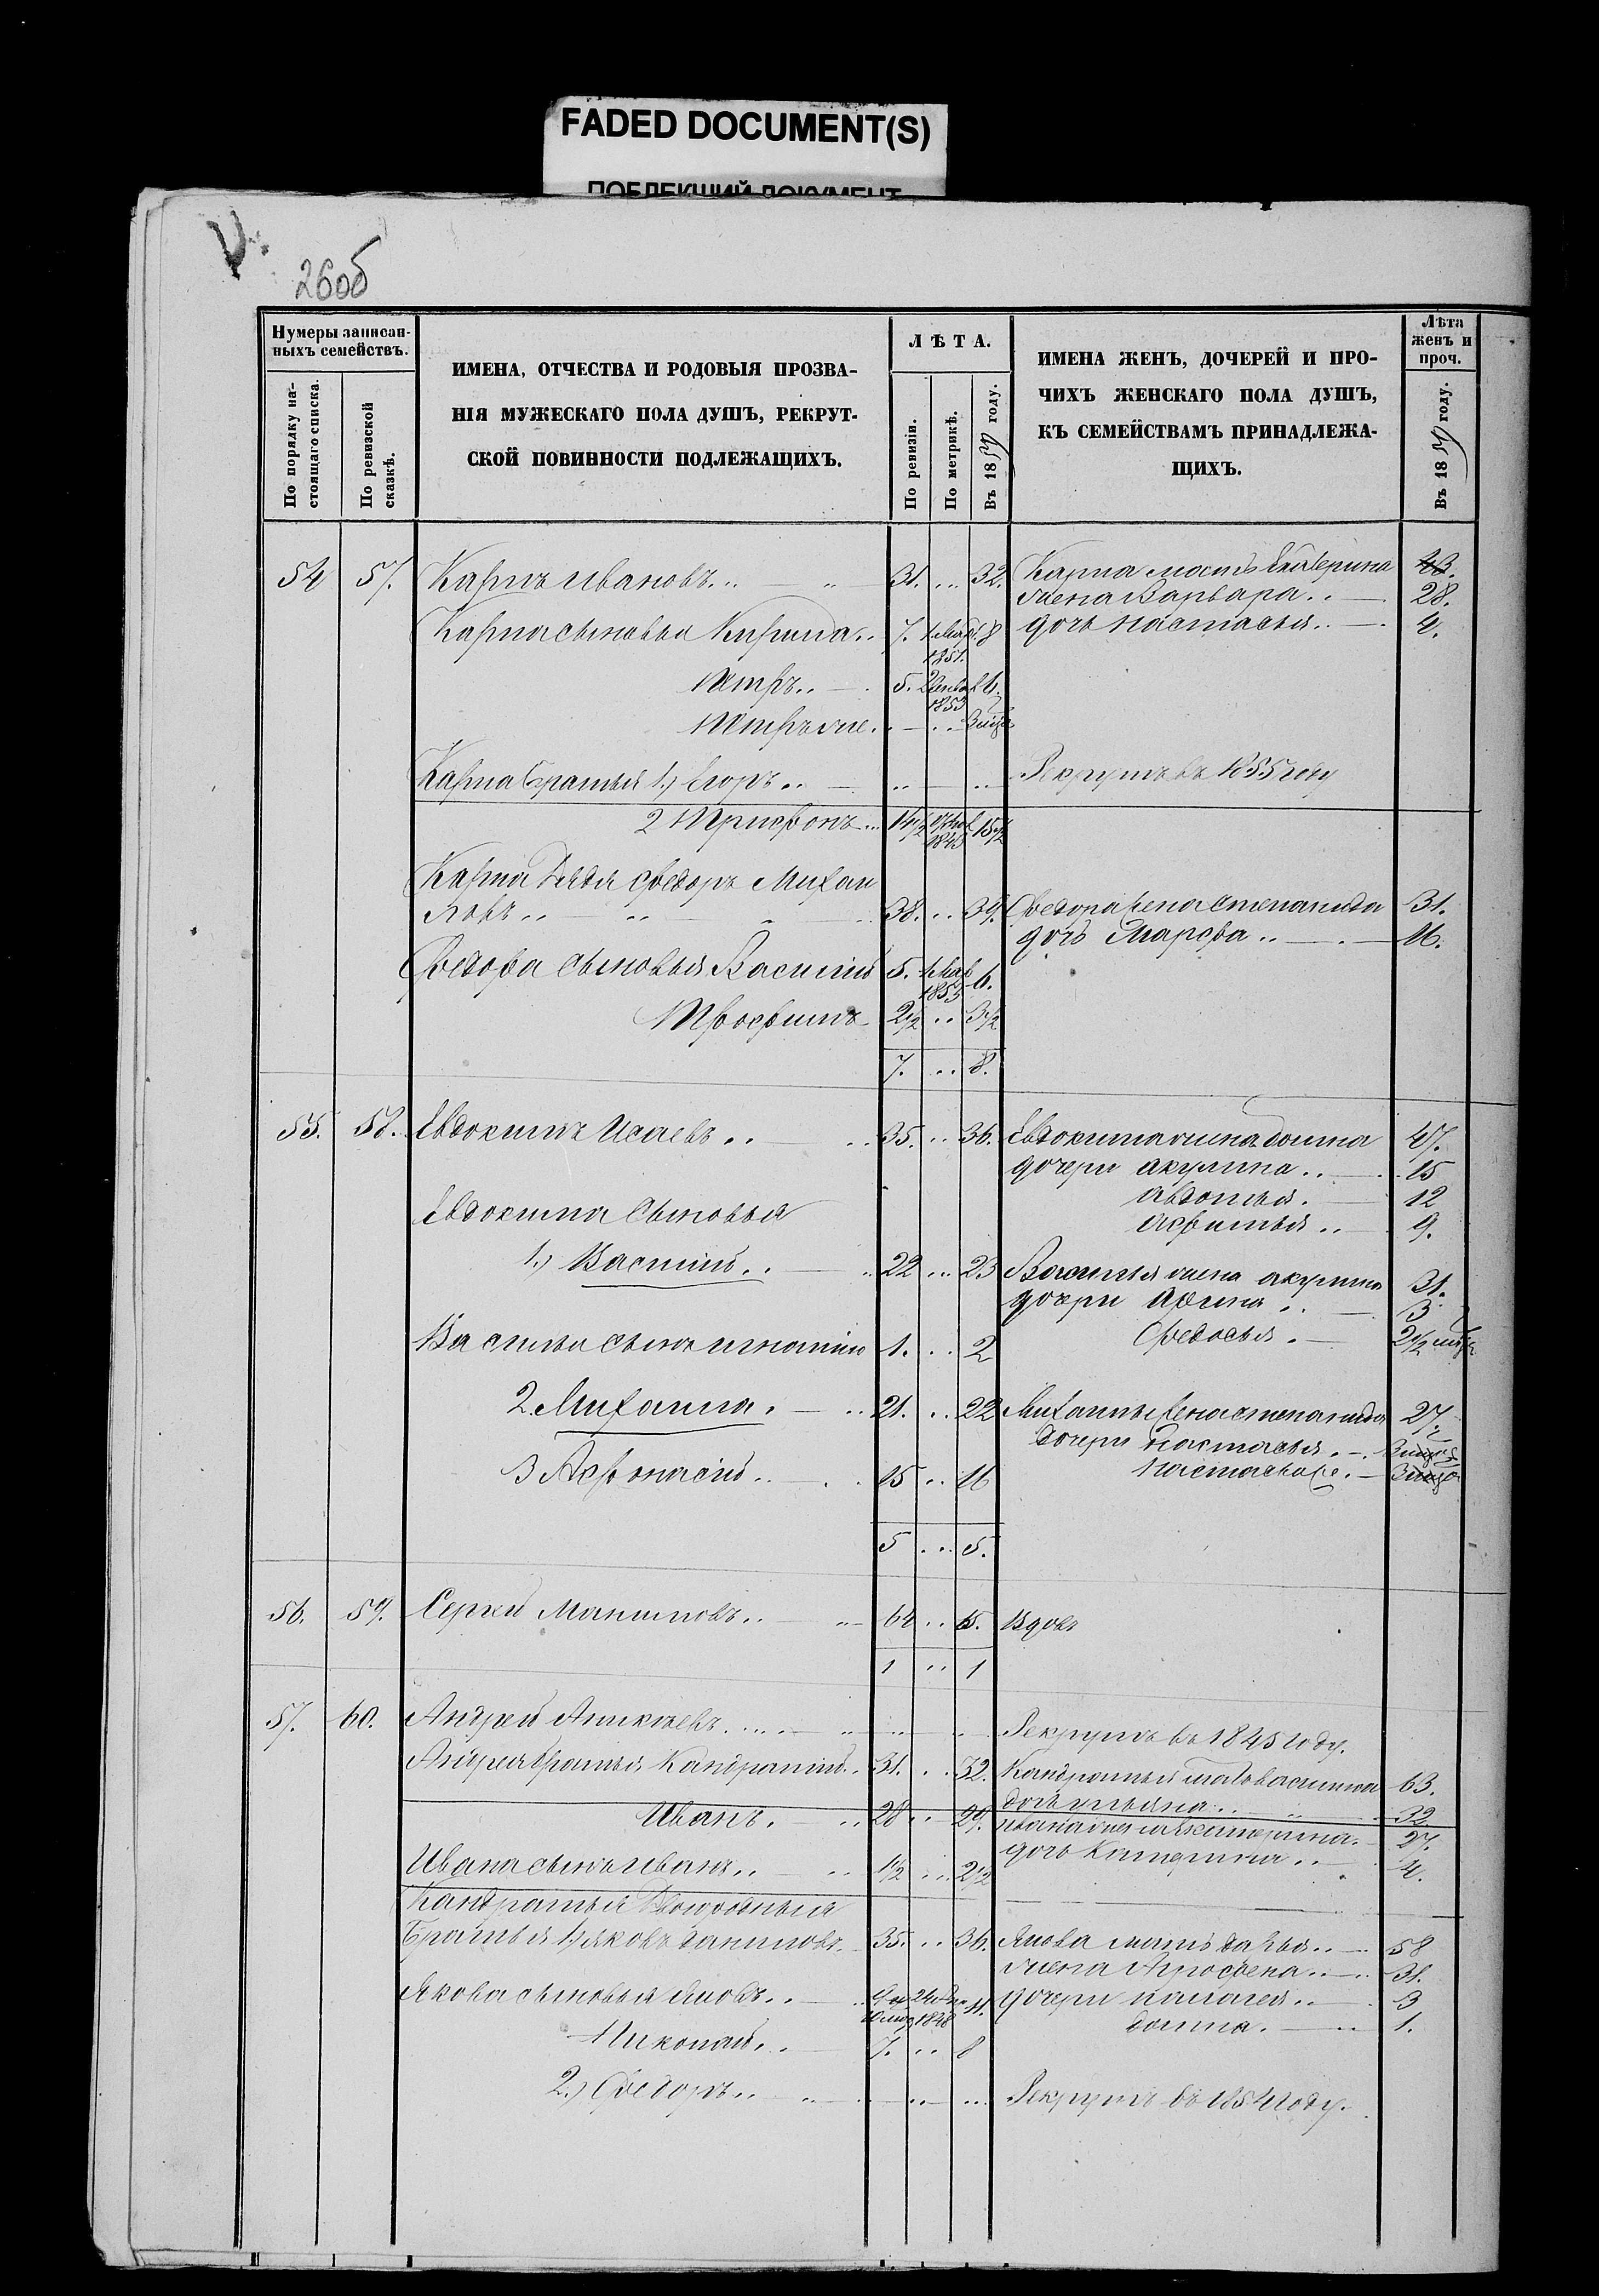 FADED DOCUMENT(S)
ПОБЛЕКШИЙ ДОКУМЕНТ
26об
Нумеры записан-
ныхъ семействъ.
По порядку на-
стоящаго списка.
По ревизской
сказкѣ.
ИМЕНА, ОТЧЕСТВА И РОДОВЫЯ ПРОЗВА-
НІЯ МУЖЕСКАГО ПОЛА ДУШЪ, РЕКРУТ-
СКОЙ ПОВИННОСТИ ПОДЛЕЖАЩИХЪ.
ЛѢТА.
По ревизіи.
По метрикѣ.
Въ 18 году.
ИМЕНА ЖЕНЪ, ДОЧЕРЕЙ И ПРО-
ЧИХЪ ЖЕНСКАГО ПОЛА ДУШЪ,
КЪ СЕМЕЙСТВАМЪ ПРИНАДЛЕЖА-
ЩИХЪ.
Лѣта
женъ и
проч.
Въ 18 году.
54 57. Карпъ Ивановъ 31. 32. Карпа мать Екатерина 43.
жена Варвара 28.
Карпа сыновья Кирила 7. 1851. 8 дочь Настасья 4.
Петръ 5. 1853 6.
Петръ же
Карпа братья 1) Егоръ Рекрутъ въ 1855 году
2 Трифонъ 14 1/2 1843 15 1/2
Карпа дядя Федоръ Михаи
ловъ 38. 39. Федора жена Степанида 31.
дочь Марфа 16.
Федора сыновья Василій 5. 1853 6.
Трофимъ 2 1/2 3 1/2
7. 8.
55. 58. Евдокимъ Исаевъ 35. 36. Евдокима жена Домна 47.
дочери Акулина 15
Авдотья 12
Евдокима сыновья Афимья 9.
1) Василій 22 23 Василья жена Акулина 31.
дочери 3
Федосья 2 1/2
Василья сынъ Игнатій 1. 2
2. Михаила 21. 22 Михаилы жена Степанида 27.
дочери Настасья
3 Афонасій 15 16 Настасья же
5 5.
56. 59. Сергей 64 65. Вдовъ
1 1
57. 60. Андрей Аникѣевъ Рекрутъ въ 1845 году.
Андрея братья Кондратій 31. 32. Кондратья мать Василиса 63.
дочь Ульяна 32
Иванъ 28 29. Ивана жена Катерина 27.
дочь Катерина 4.
Ивана сынъ Иванъ 1 1/2 2 1/2
Кондратья двоюродныя
братья 1) Яковъ Даниловъ 35. 36. Якова мать Дарья 58
жена Апросѣена 31.
Якова сыновья Яковъ 1848 11. дочери Палагея 3
Домна 1.
Николай 7. 8
2.) Федоръ Рекрутъ въ 1854 году.